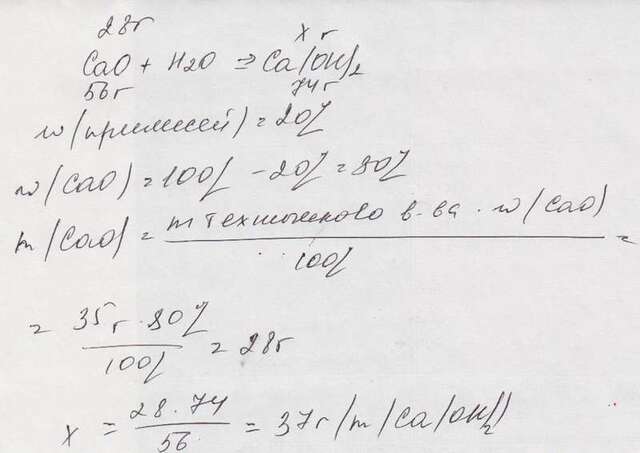 28г x г
CaO + H2O => Ca(OH)2
56г 74г
w(примесей) = 20%
w(CaO) = 100% - 20% = 80%
m(CaO) = m технического в-ва · w(CaO) =
100%
= 35г · 80% = 28г
100%
x = 28 · 74 = 37г (m(Ca(OH)2)
56